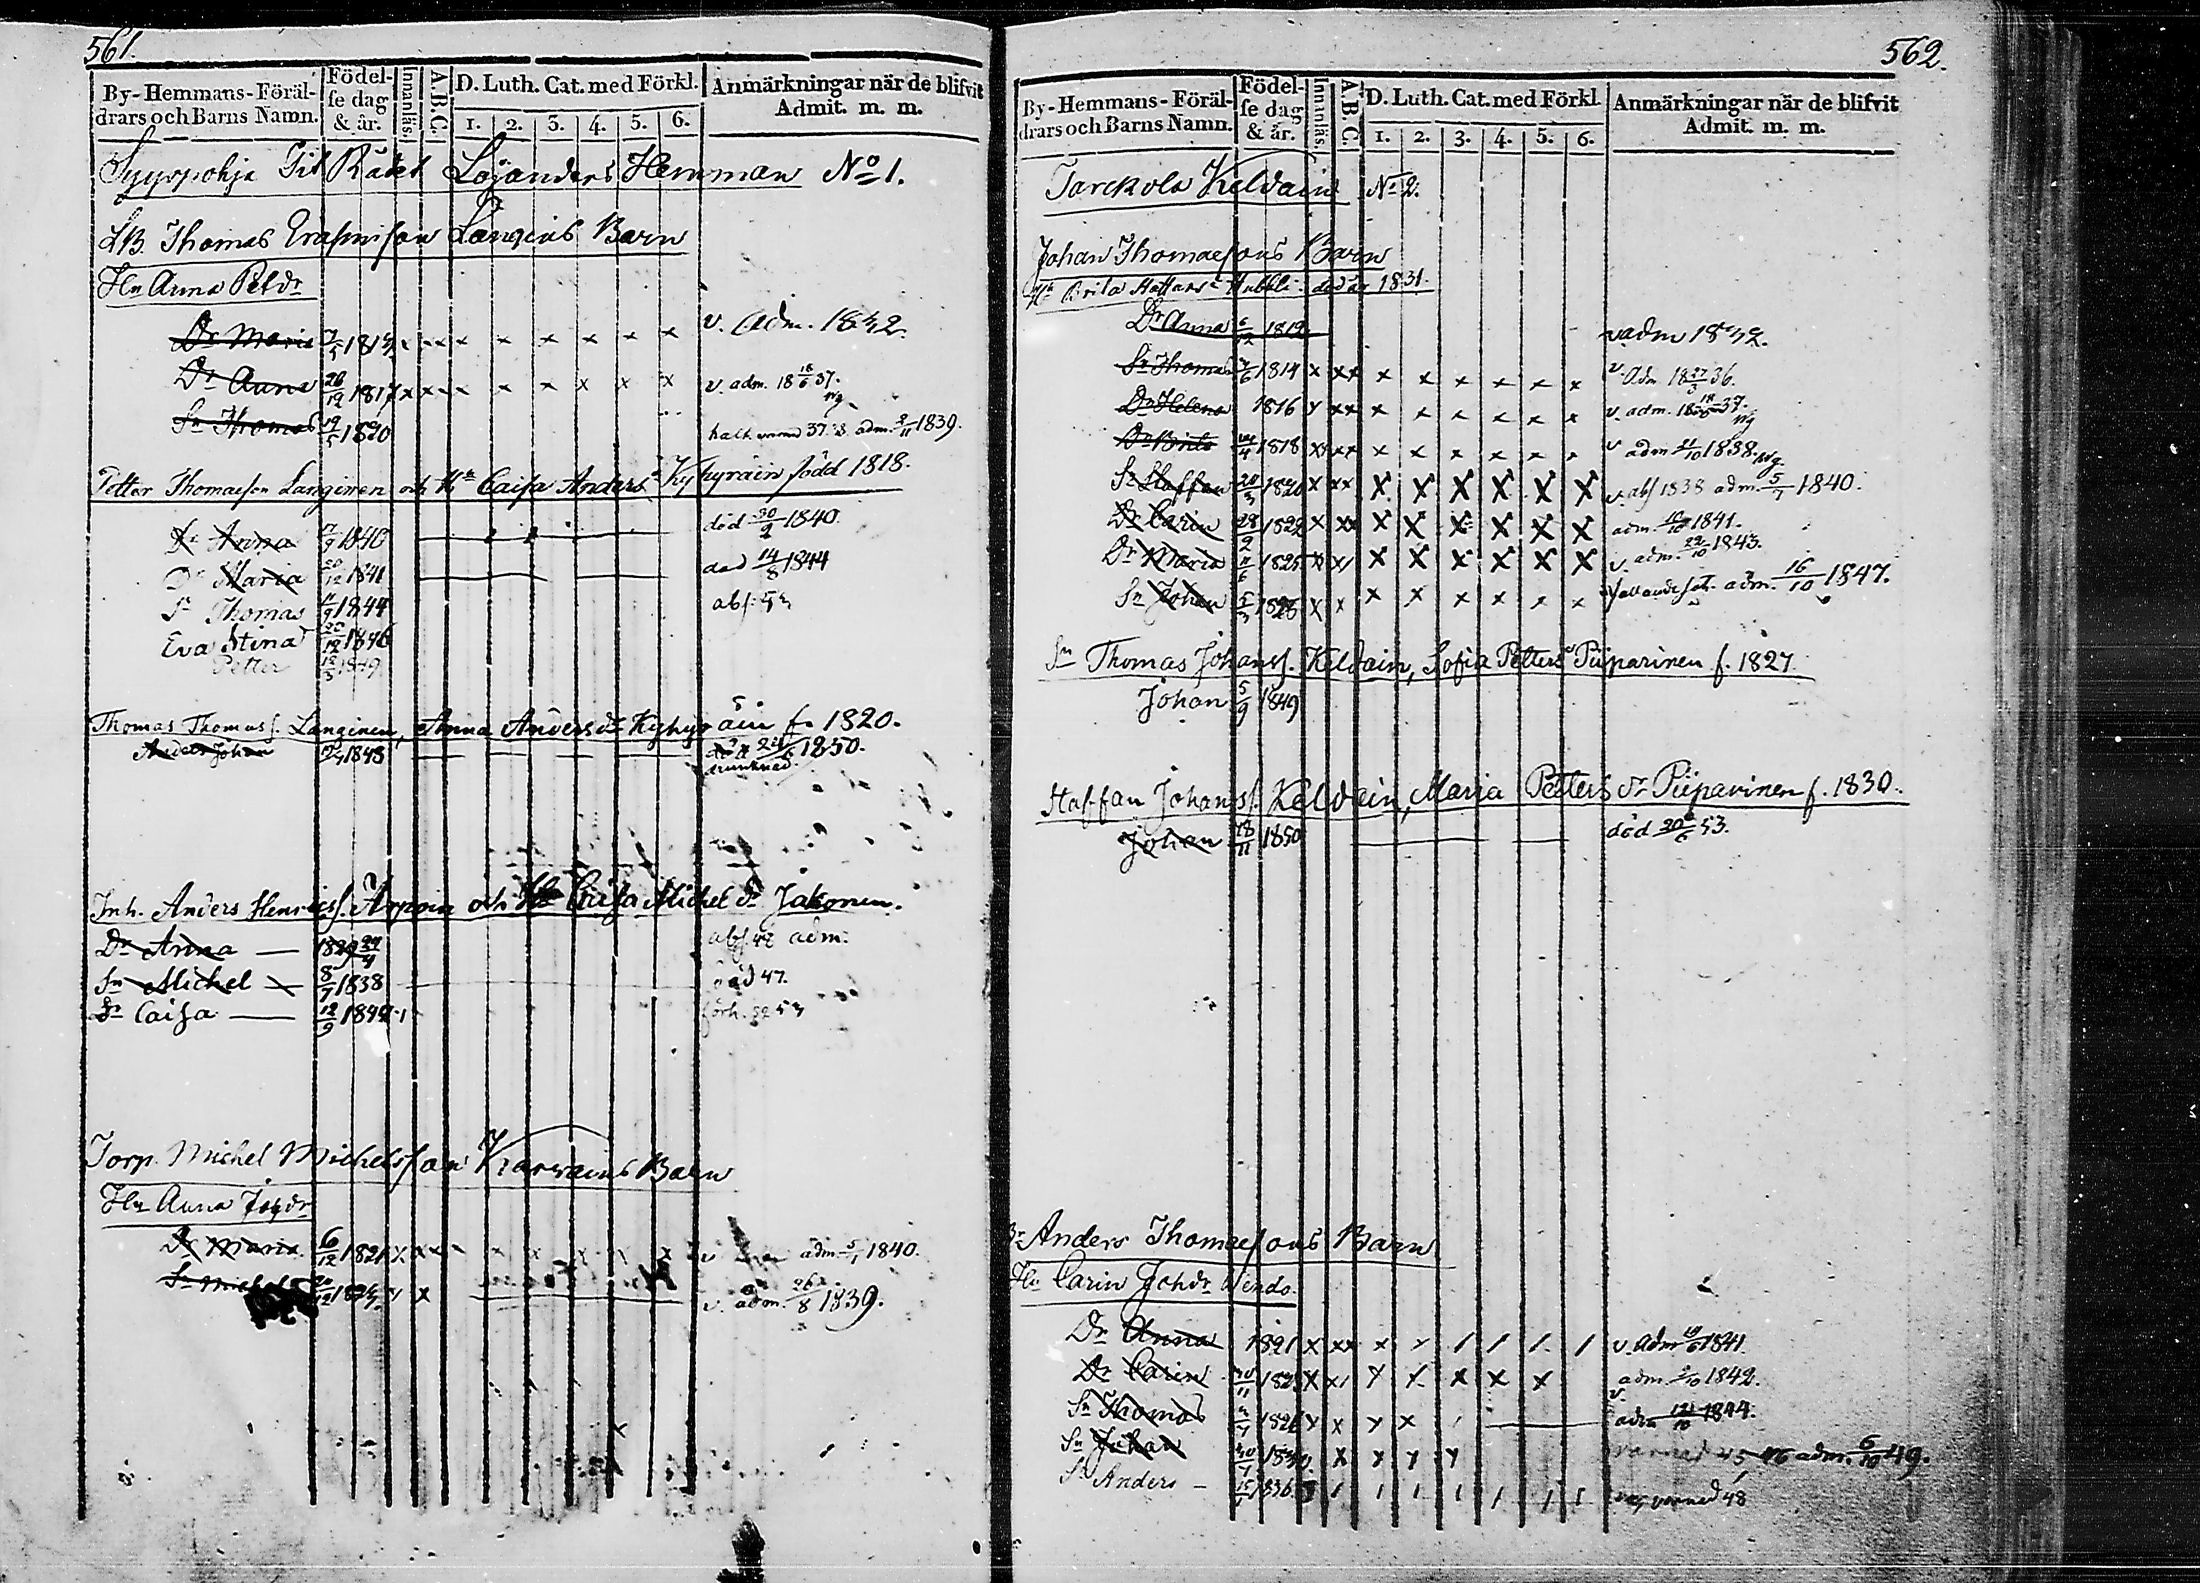 561.
By-Hemmans-Föräl-
drars och Barns Namn.
Födel-
se dag
& år.
Innanläs.
A.B.C.
D. Luth. Cat. med Förkl.
1. 2. 3. 4. 5. 6.
Anmärkningar när de blifvit
Admit. m. m.
Syyspohja Tit Rådet Löjanders Hemman No 1.
LB. Thomas Erasmison Langins Barn
Hu Anna Petdr
Dr Maria 1815 x x x x x x x x v. adm. 1832.
Dr Anna 28/12 1817 x x x x x x x x v. adm. 18 18/6 37.
Sn Thomas 19/5 1820 37. adm. 3/11 1839.
Petter Thomasson Langinen och Hu Caisa Anders dr Kyhyräin född 1818.
Dr Anna 7/9 1840 död 30/9 1840
Dr Maria 20/12 1841 död 14/8 1844
Sn Thomas 11/9 1844 abs. 53
Eva Stina 20/12 1846
Petter 12/3 1849
Thomas Thomass. Langinen, Anna Andersdr Kyhyräin f. 1820.
Anders Johan 1848 död 1850.
drunknad.
Inh. Anders Henricss. Arpoin och Hu Caisa Michel dr Jakonen.
Dr Anna — 1829 abs. 42 adm.
Sn Michel — 8/7 1838 död 47.
Dr Caisa — 12/9 1842 förh. 52 53
Torp. Michel Michelsson Karvains Barn
Hu Anna Johdr
Dr Maria 6/12 1821 x x x x x x x x v adm. 5/1 1840.
Sn Michel x v. adm. 26/8 1839.
562.
By-Hemmans-Föräl-
drars och Barns Namn.
Födel-
se dag
& år.
Innanläs.
A.B.C.
D. Luth. Cat. med Förkl.
1. 2. 3. 4. 5. 6.
Anmärkningar när de blifvit
Admit. m. m.
Tarckola Keldain No 2.
Johan Thomaesons Barn
Hu Brita Staffans dr Hubbli död år 1831.
Dr Anna 6/12 1812 v adm 1832.
Sn Thomas 3/6 1814 x xx x x x x x x v. adm 18 27/3 36.
Dr Helena 1816 x xx x x x x x x v. adm. 18 18/6 37.
Dr Brita 1818 x xx x x x x x x v adm 21/10 1838.
Sn Staffan 20/3 1820 x xx x x x x x x v. abs 1838 adm. 5/7 1840.
Dr Carin 28/9 1822 x xx x x x x x x adm. 10/10 1841.
Dr Maria 11/6 1825 x x x x x x x x v. adm. 22/10 1843.
Sn Johan x x x x x x x x adm. 16/10 1847.
Sn Thomas Johanss. Keldain, Sofia Petters dr Piiparinen f. 1827
Johan 5/9 1849
Staffan Johanss. Keldain, Maria Petters dr Piiparinen f. 1830.
Johan 18/11 1850 död 20/6 53.
Br Anders Thomaesons Barn
Hu Carin Johdr Wendo.
Dr Anna 1821 x xx x x / / / / v. adm 10/6 1841.
Dr Carin x x x x x x x adm. 2/10 1842.
Sn Thomas x x x x v. adm 1844.
Sn Johan 1830 x x x x varnad 45 46 adm. 6/10 49.
Sn Anders — 1836 / / / / / / / varnad 48